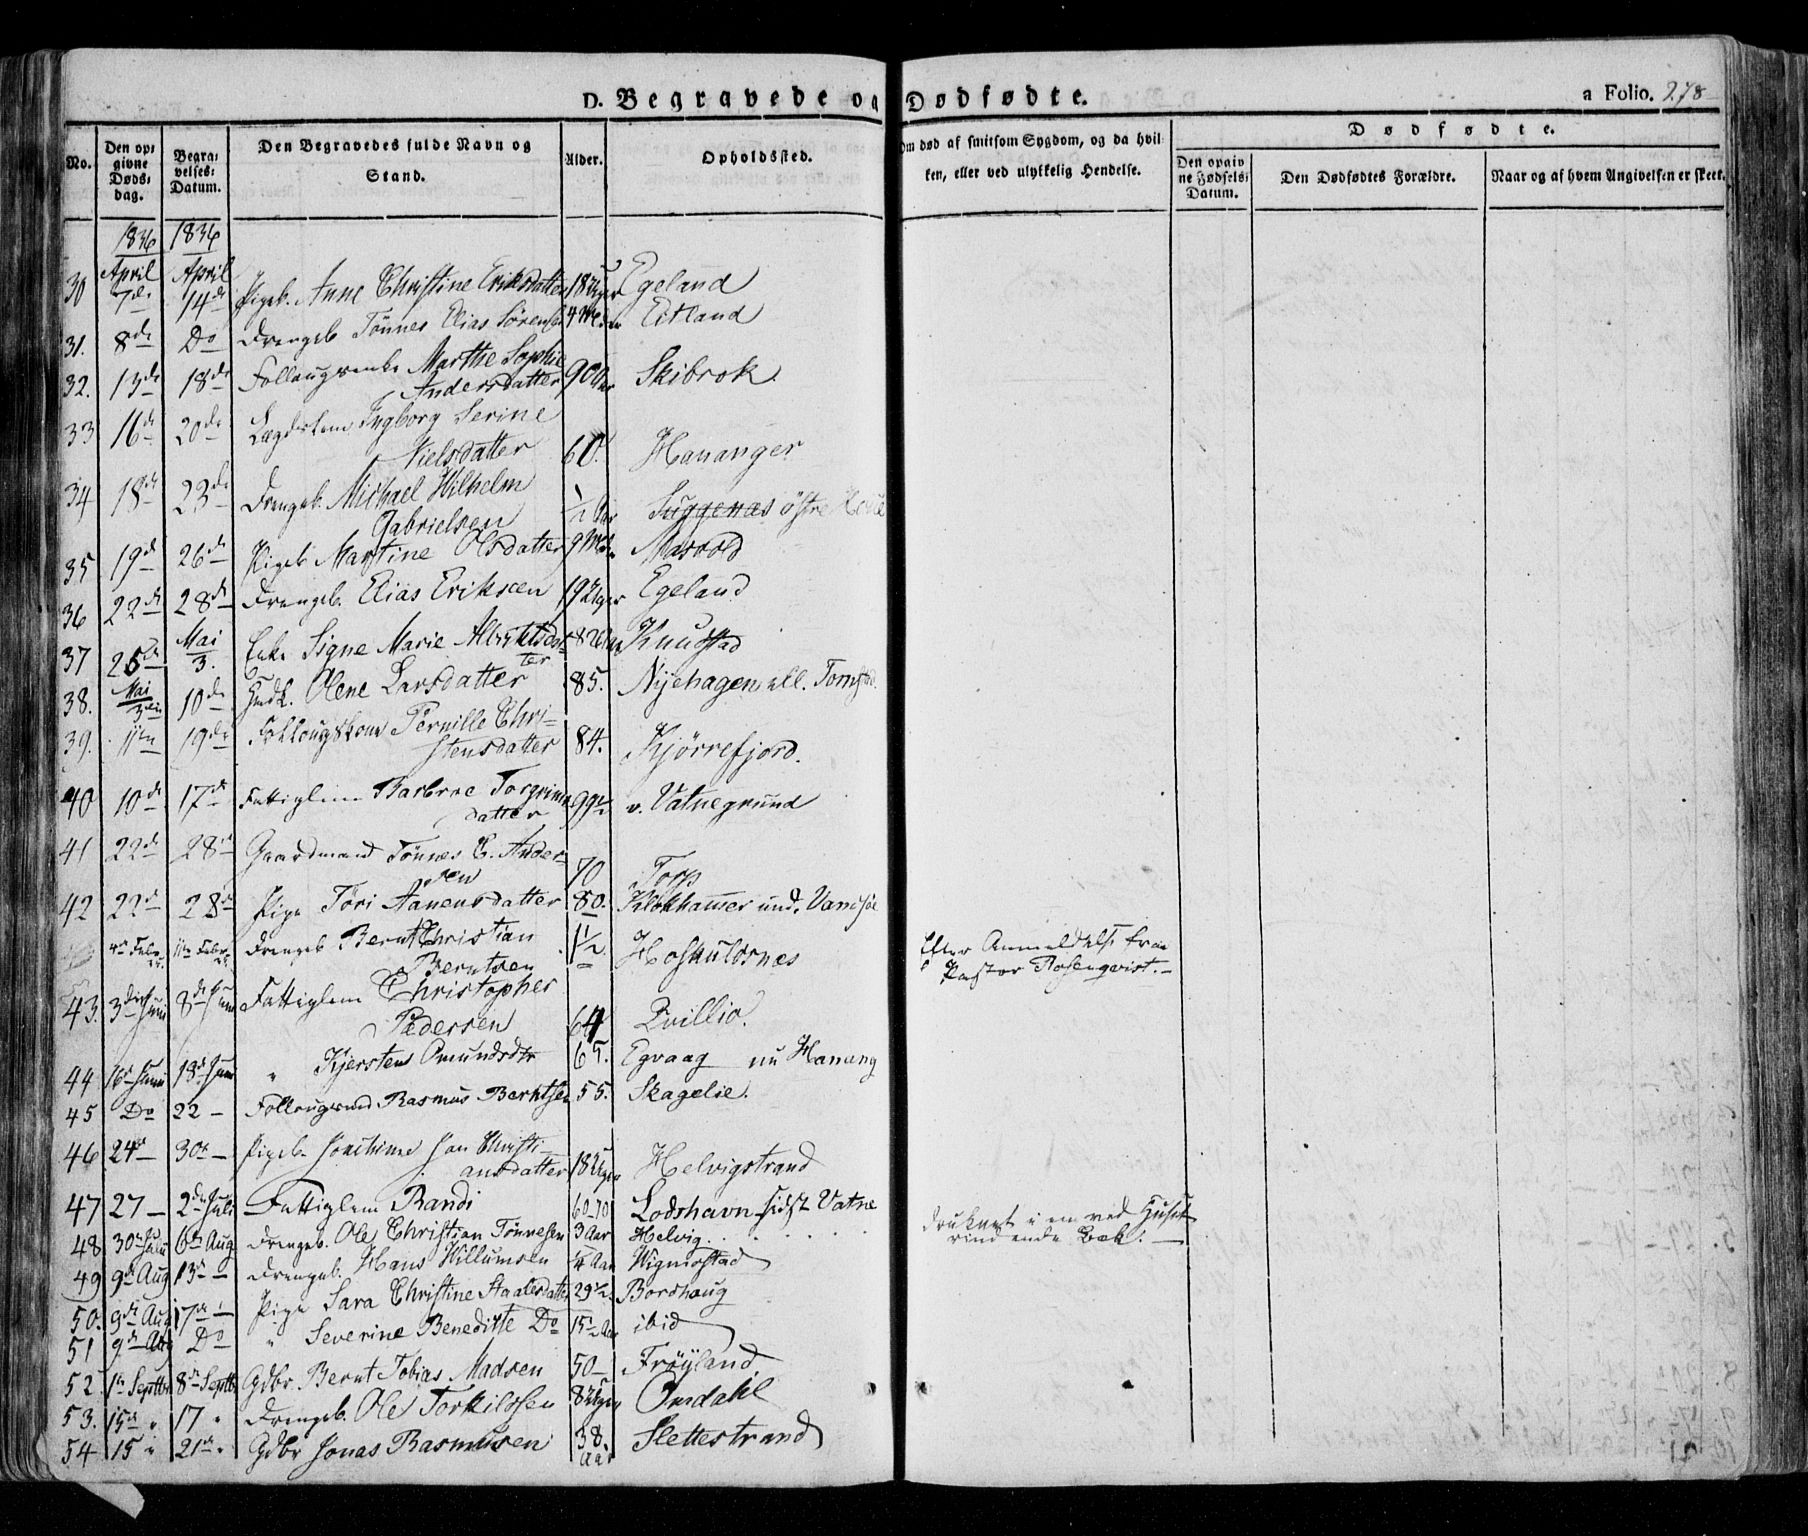 D. Begravede og Dødfødte. a Folio. 278
No. Den opgivne Døds-dag. Begravelses-Datum. Den Begravedes fulde Navn og Stand. Alder. Opholdssted. Om død af smitsom Sygdom, og da hvilken, eller ved ulykkelig Hendelse. Dødfødte.
Den opgivne Fødsels-Datum. Den Dødfødtes Forældre. Naar og af hvem Angivelsen er skeet.
1836 1836
April April
30 7de 14de Pigeb. Anne Christine Eriksdatter 18 Uger Egeland
31. 8de Do Drengeb Tönnes Elias Sörensen 4 Eitland
32. 13de 18de Marthe Sophie
Andersdatter 90 Aar Skibrok.
33 16de 20de Lægdslem Ingborg Serine
Nielsdatter 60. Hananger
34 18de 23de Drengeb. Michael Wilhelm
Gabrielsen ½ Aar Suggenæs östre
35 19de 26de Pigeb Martine Olsdatter 9
36 22de 28de Drengeb. Elias Eriksen 19 Uger Egeland
Mai
37 25de 3. Enke Signe Marie Albrektsdat-
ter 82 Aar Knudstad
Mai
38. 3die 10de Olene Larsdatter 85. Nyehagen Tomstad.
39. 11te 19de Pernille Chri-
stensdatter 84. Kjörrefjord.
40 10de 17de Fattiglem Barbroe Torgrims
datter 99½ v. Vatnegrund
41 22de 28de Gaardmand Tönnes E. Ander-
sen 70 Torp
42 22de 28de Pige Töri Aanensdatter 80. Klokhamer und. Vansöe
4de Febr 11te Febr Drengeb Bernt Christian
Berntsen 1½ Hoskuldsnæs Efter Anmeldelse fra
Pastor Rosenqvist.-
43. 3die Juni 8de Juni Fattiglem Christopher
Pedersen 64 Qvillio.
44 16de Juni 18de Juni " Kjersten Omundsdtr 65. Egvaag nu Hanang
45 Do 22 - Rasmus Berntsen 55. Skagelie.
46 24de - 30te - Pigeb. Joachime Jan Christi-
ansdatter 18 Uger Helvigstrand
47 27 - 2den Juli Fattiglem Randi 60-70 Lodshavn sidst Vatne
48 30te Juli 6te Aug Drengeb. Ole Christian Tönnesen 3 Aar Helvig. druknet i en ved Huset
rindende Bæk. -
49 9de Aug 13de - Drengeb. Hans Willumsen ¼ Aar Wigmostad
50. 9de Aug 17de - Pige Sara Christine Staalesdatter 29½ Bordhaug
51 9de Aug Do " Severine Benedikte Do 15½ Aar ibid
52. 1te Septbr 8de Septbr Gdbr. Bernt Tobias Madsen 50 - Fröyland
53. 15de " 17 " Drengeb. Ole Torkildsen 8 Uger Omdahl
54 15 " 21de " Gdbr Jonas Rasmusen 38. Aar Slettestrand